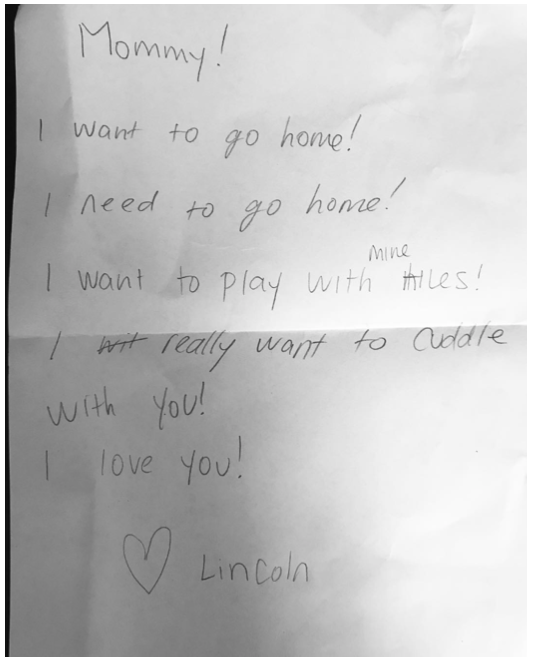 Mommy!
I want to go home!
I need to go home!
mine
I want to play with tiles!
I really want to cuddle
with you!
I love you!
Lincoln